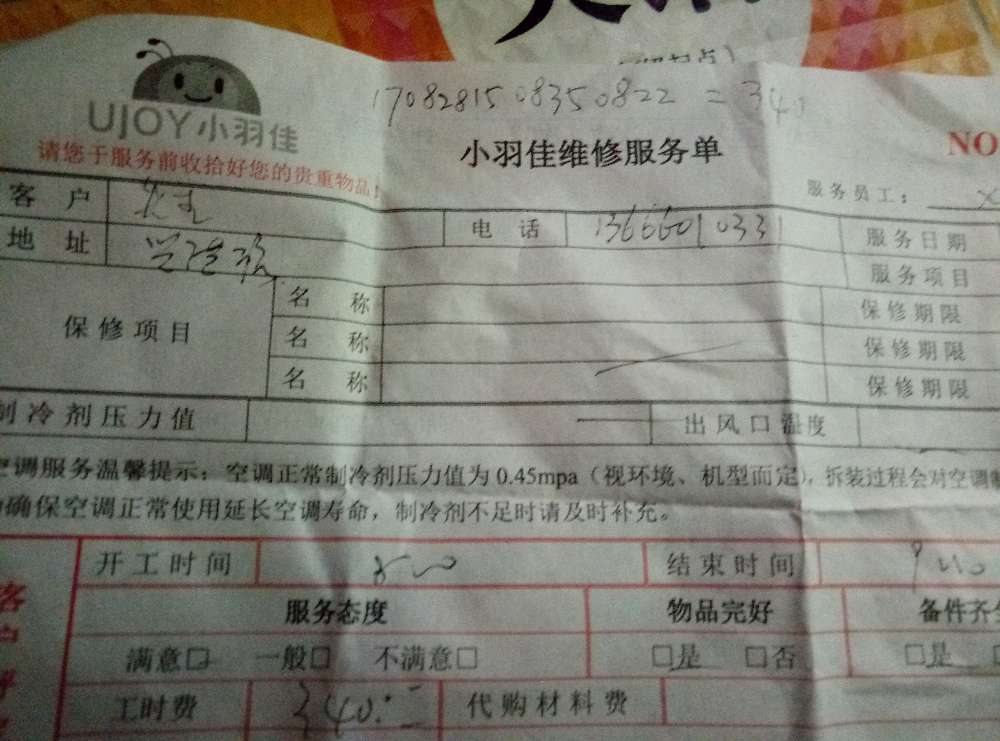 170828150835 0822 = 340
UJOY小羽佳
小羽佳维修服务单
NO
请您于服务前收拾好您的贵重物品!
服务员工:
客 户
电 话
13666010331
服务日期
地 址
服务项目
保修项目
名 称
保修期限
名 称
保修期限
名 称
保修期限
制冷剂压力值
出风口温度
空调服务温馨提示:空调正常制冷剂压力值为0.45mpa(视环境、机型而定),拆装过程会对空调制
确保空调正常使用延长空调寿命,制冷剂不足时请及时补充。
开工时间
结束时间
服务态度 物品完好 备件齐全
满意□ 一般□ 不满意□ □是 □否 □是
工时费 340 代购材料费